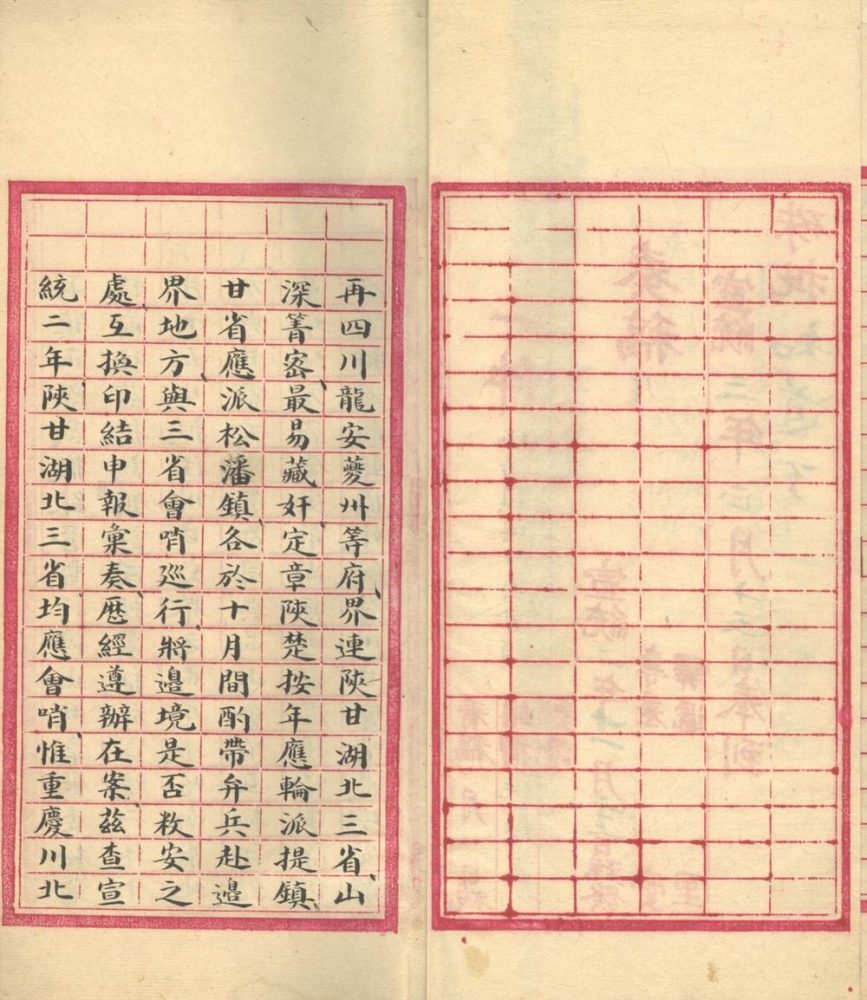 再四川龍安夔州等府、界連陝甘湖北三省、山
深箐密、最易藏奸、定章陝楚按年應輪派提鎮、
甘省應派松潘鎮、各於十月間酌帶弁兵赴邊
界地方、與三省會哨巡行、將邊境是否敉安之
處、互換印結申報彙奏、歷經遵辦在案、茲查宣
統二年陝甘湖北三省均應會哨、惟重慶川北